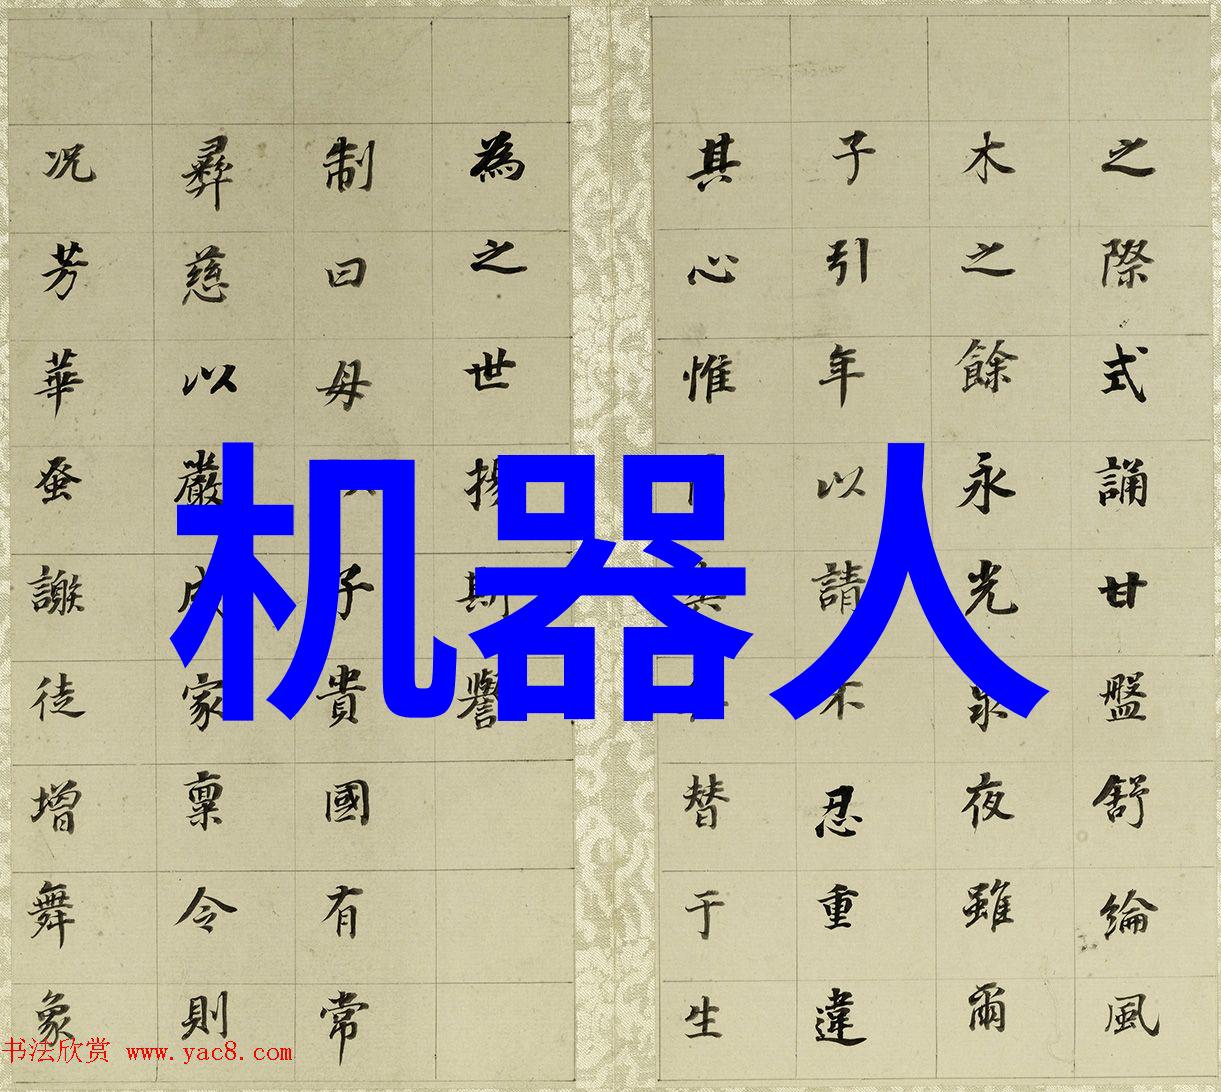 之際式誦甘盤舒綸風
木之餘永光泉夜雖爾
子引年以請不忍重違
其心惟替于生
為之世揚斯譽
制曰母子貴國有常
彞慈以嚴成家稟令則
况芳華蚤謝徒增舞象
机器人
书法欣赏 www.yac8.com